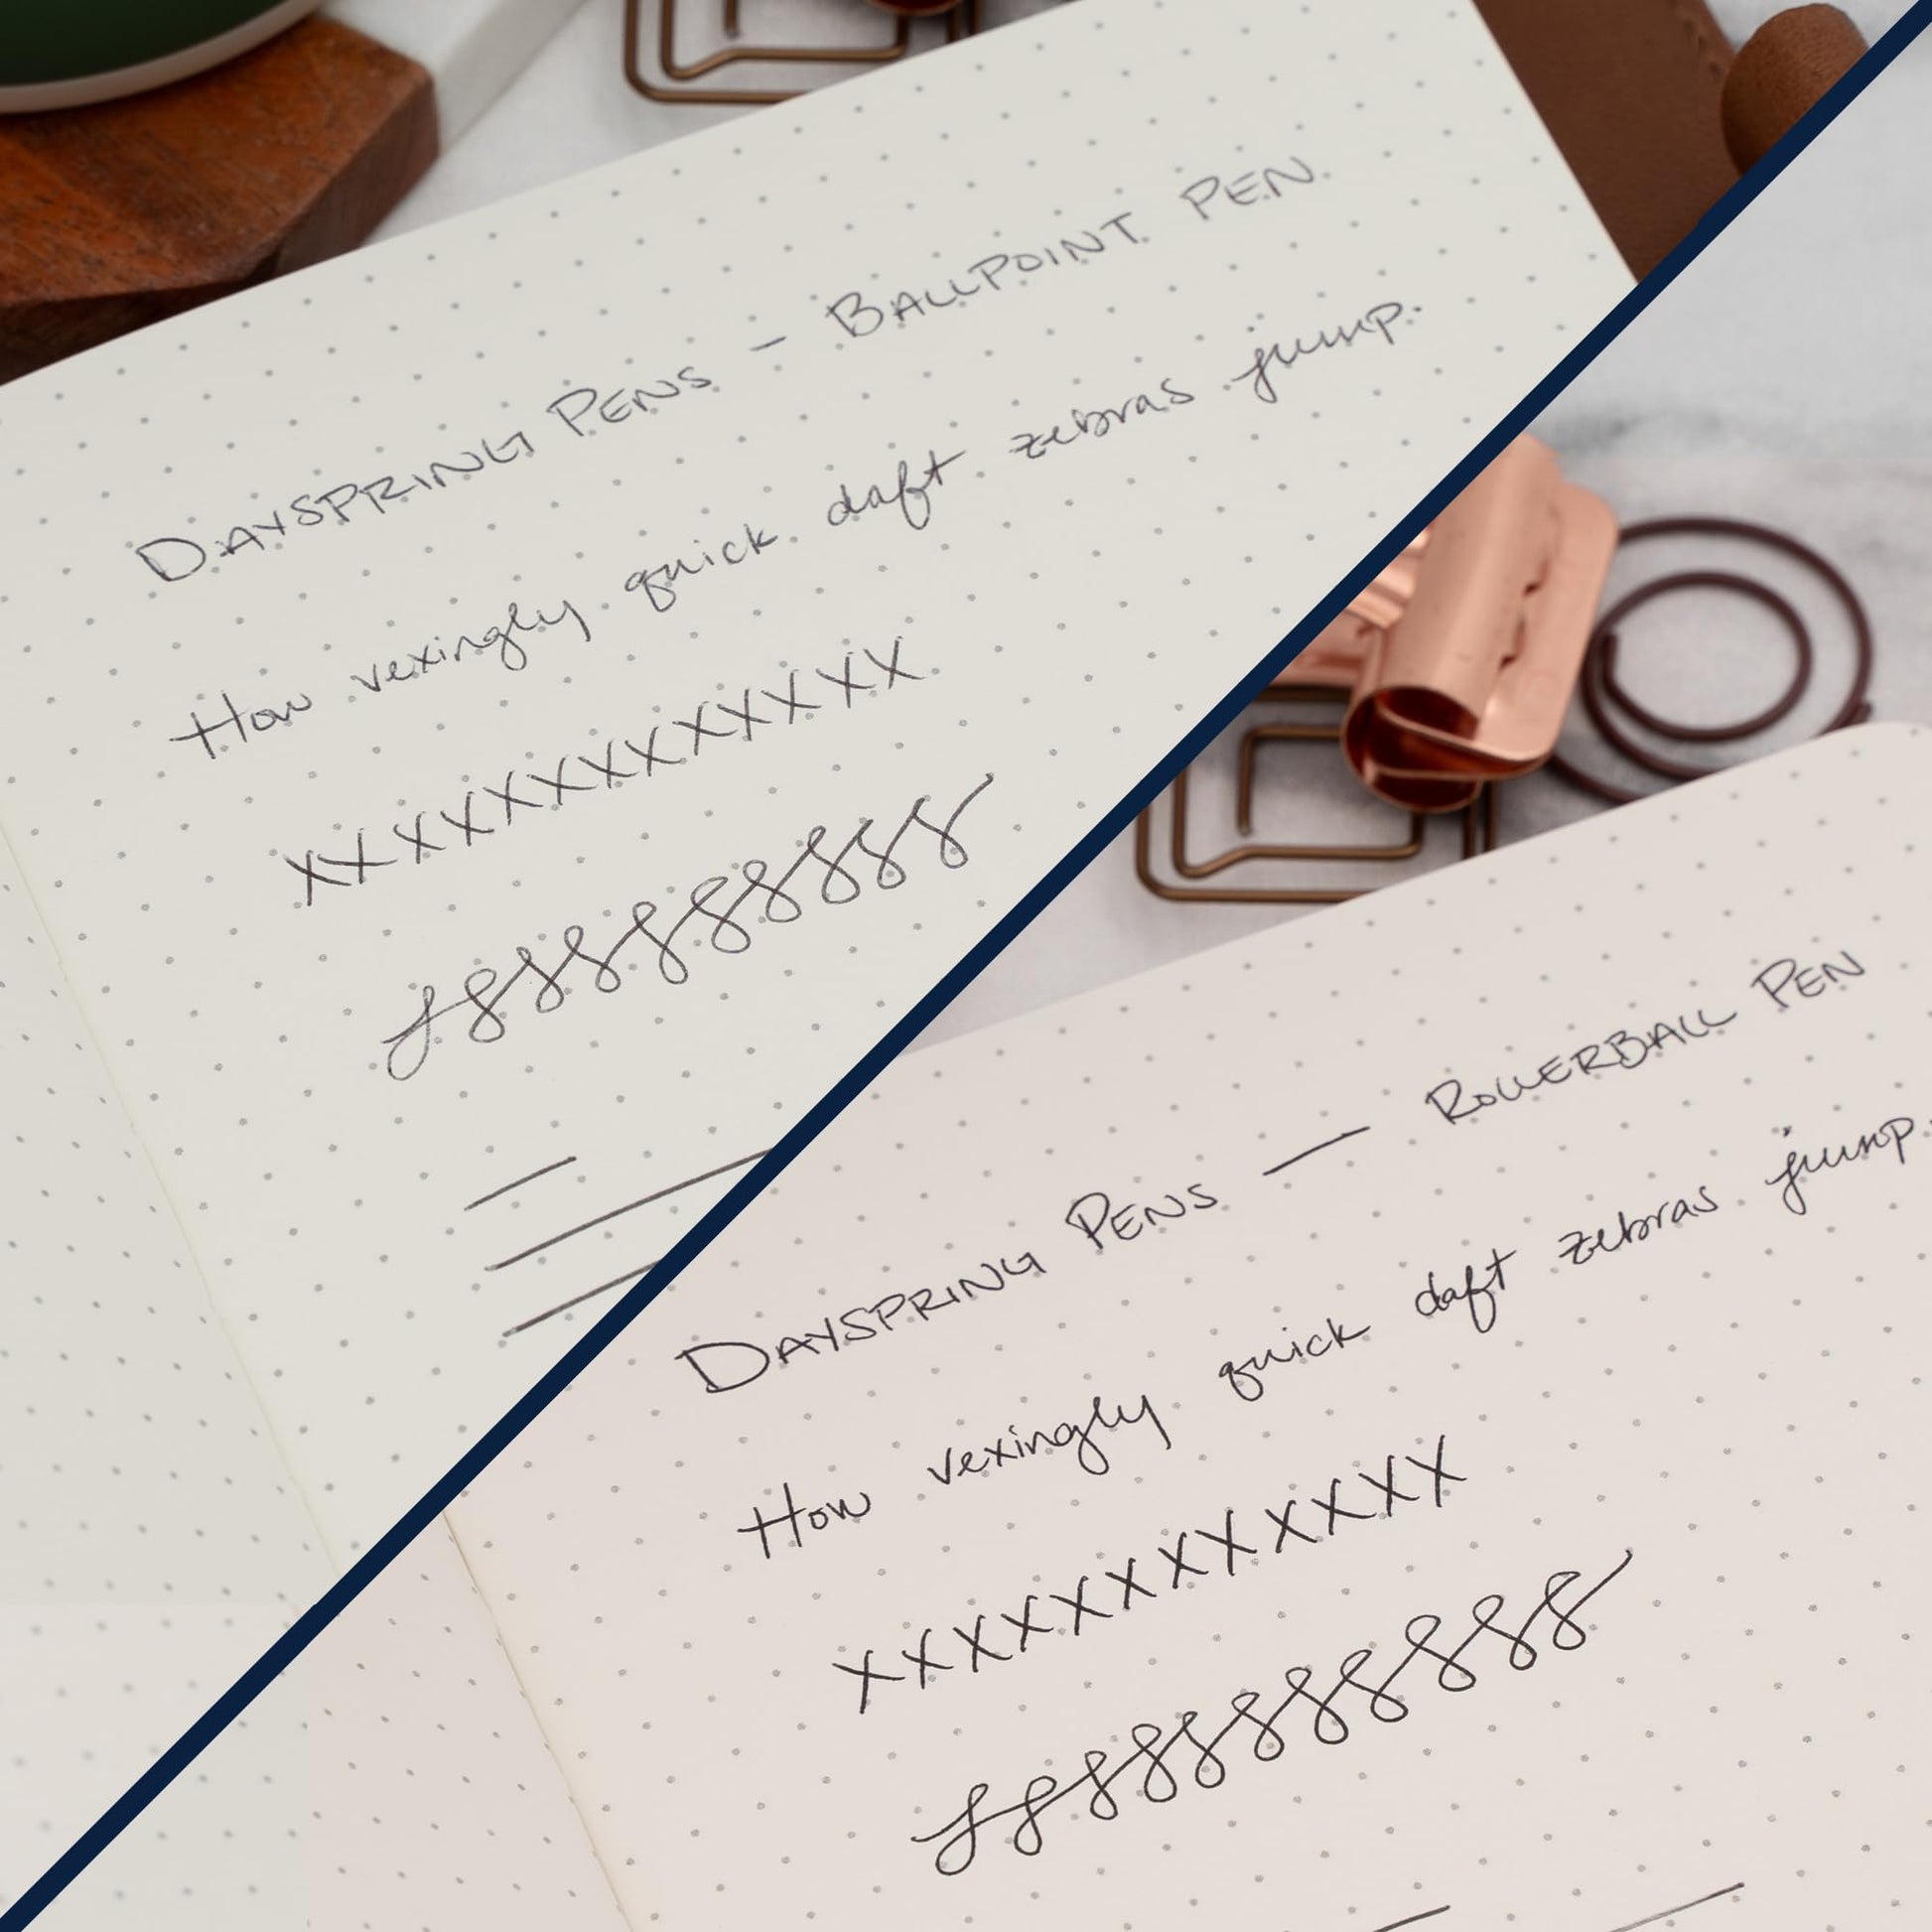 DAYSPRING PENS – BALLPOINT PEN
How vexingly quick daft zebras jump.
XXXXXXXXXXXXX
DAYSPRING PENS — ROLLERBALL PEN
How vexingly quick daft zebras jump.
XXXXXXXXXXXX